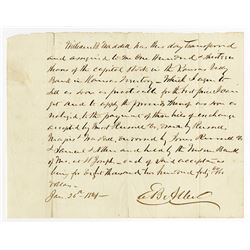 William B. Waddell has this day transferred
and assigned to me One Hundred & thirteen
shares of the capital stock in the Kansas Valley
Bank in Kansas Territory – Which I agree to
sell as soon as practicable for the best price I can
get and to apply the proceeds thereof as soon as
realized, to the payment of three bills of exchange
accepted by Russell & drawn by Russell,
Majors & Waddell, endorsed by Jones Russell &
& Samuel & Allen and held by the Branch Bank
of Mo. at St Joseph – and of said accept-
being for Eight thousand two hundred fifty
dollars –
Jan. 30th 1861 –